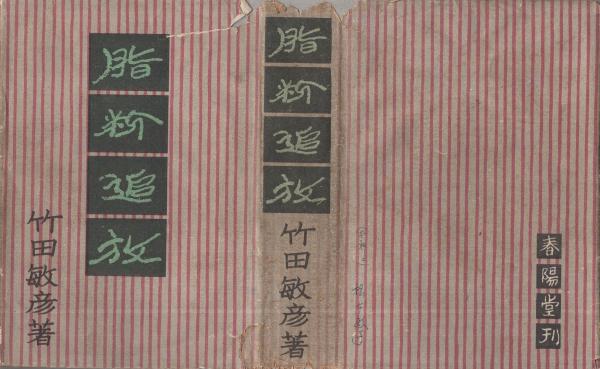 脂粉追放
竹田敏彦著
脂粉追放
竹田敏彦著
春陽堂刊